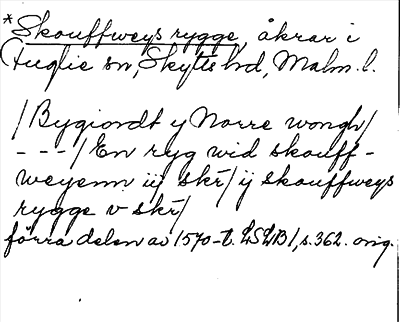 *Skouffweys rygge, åkrar i
Fuglie sn, Skytts hd, Malm. l.
/Bygiordt y Norre wongh/
---/En ryg wid skouff-
weyenn iij skr̄/ ij skouffweys
rygge v skr̄/
förra delen av 1570-t. LSLB1, s. 362. orig.